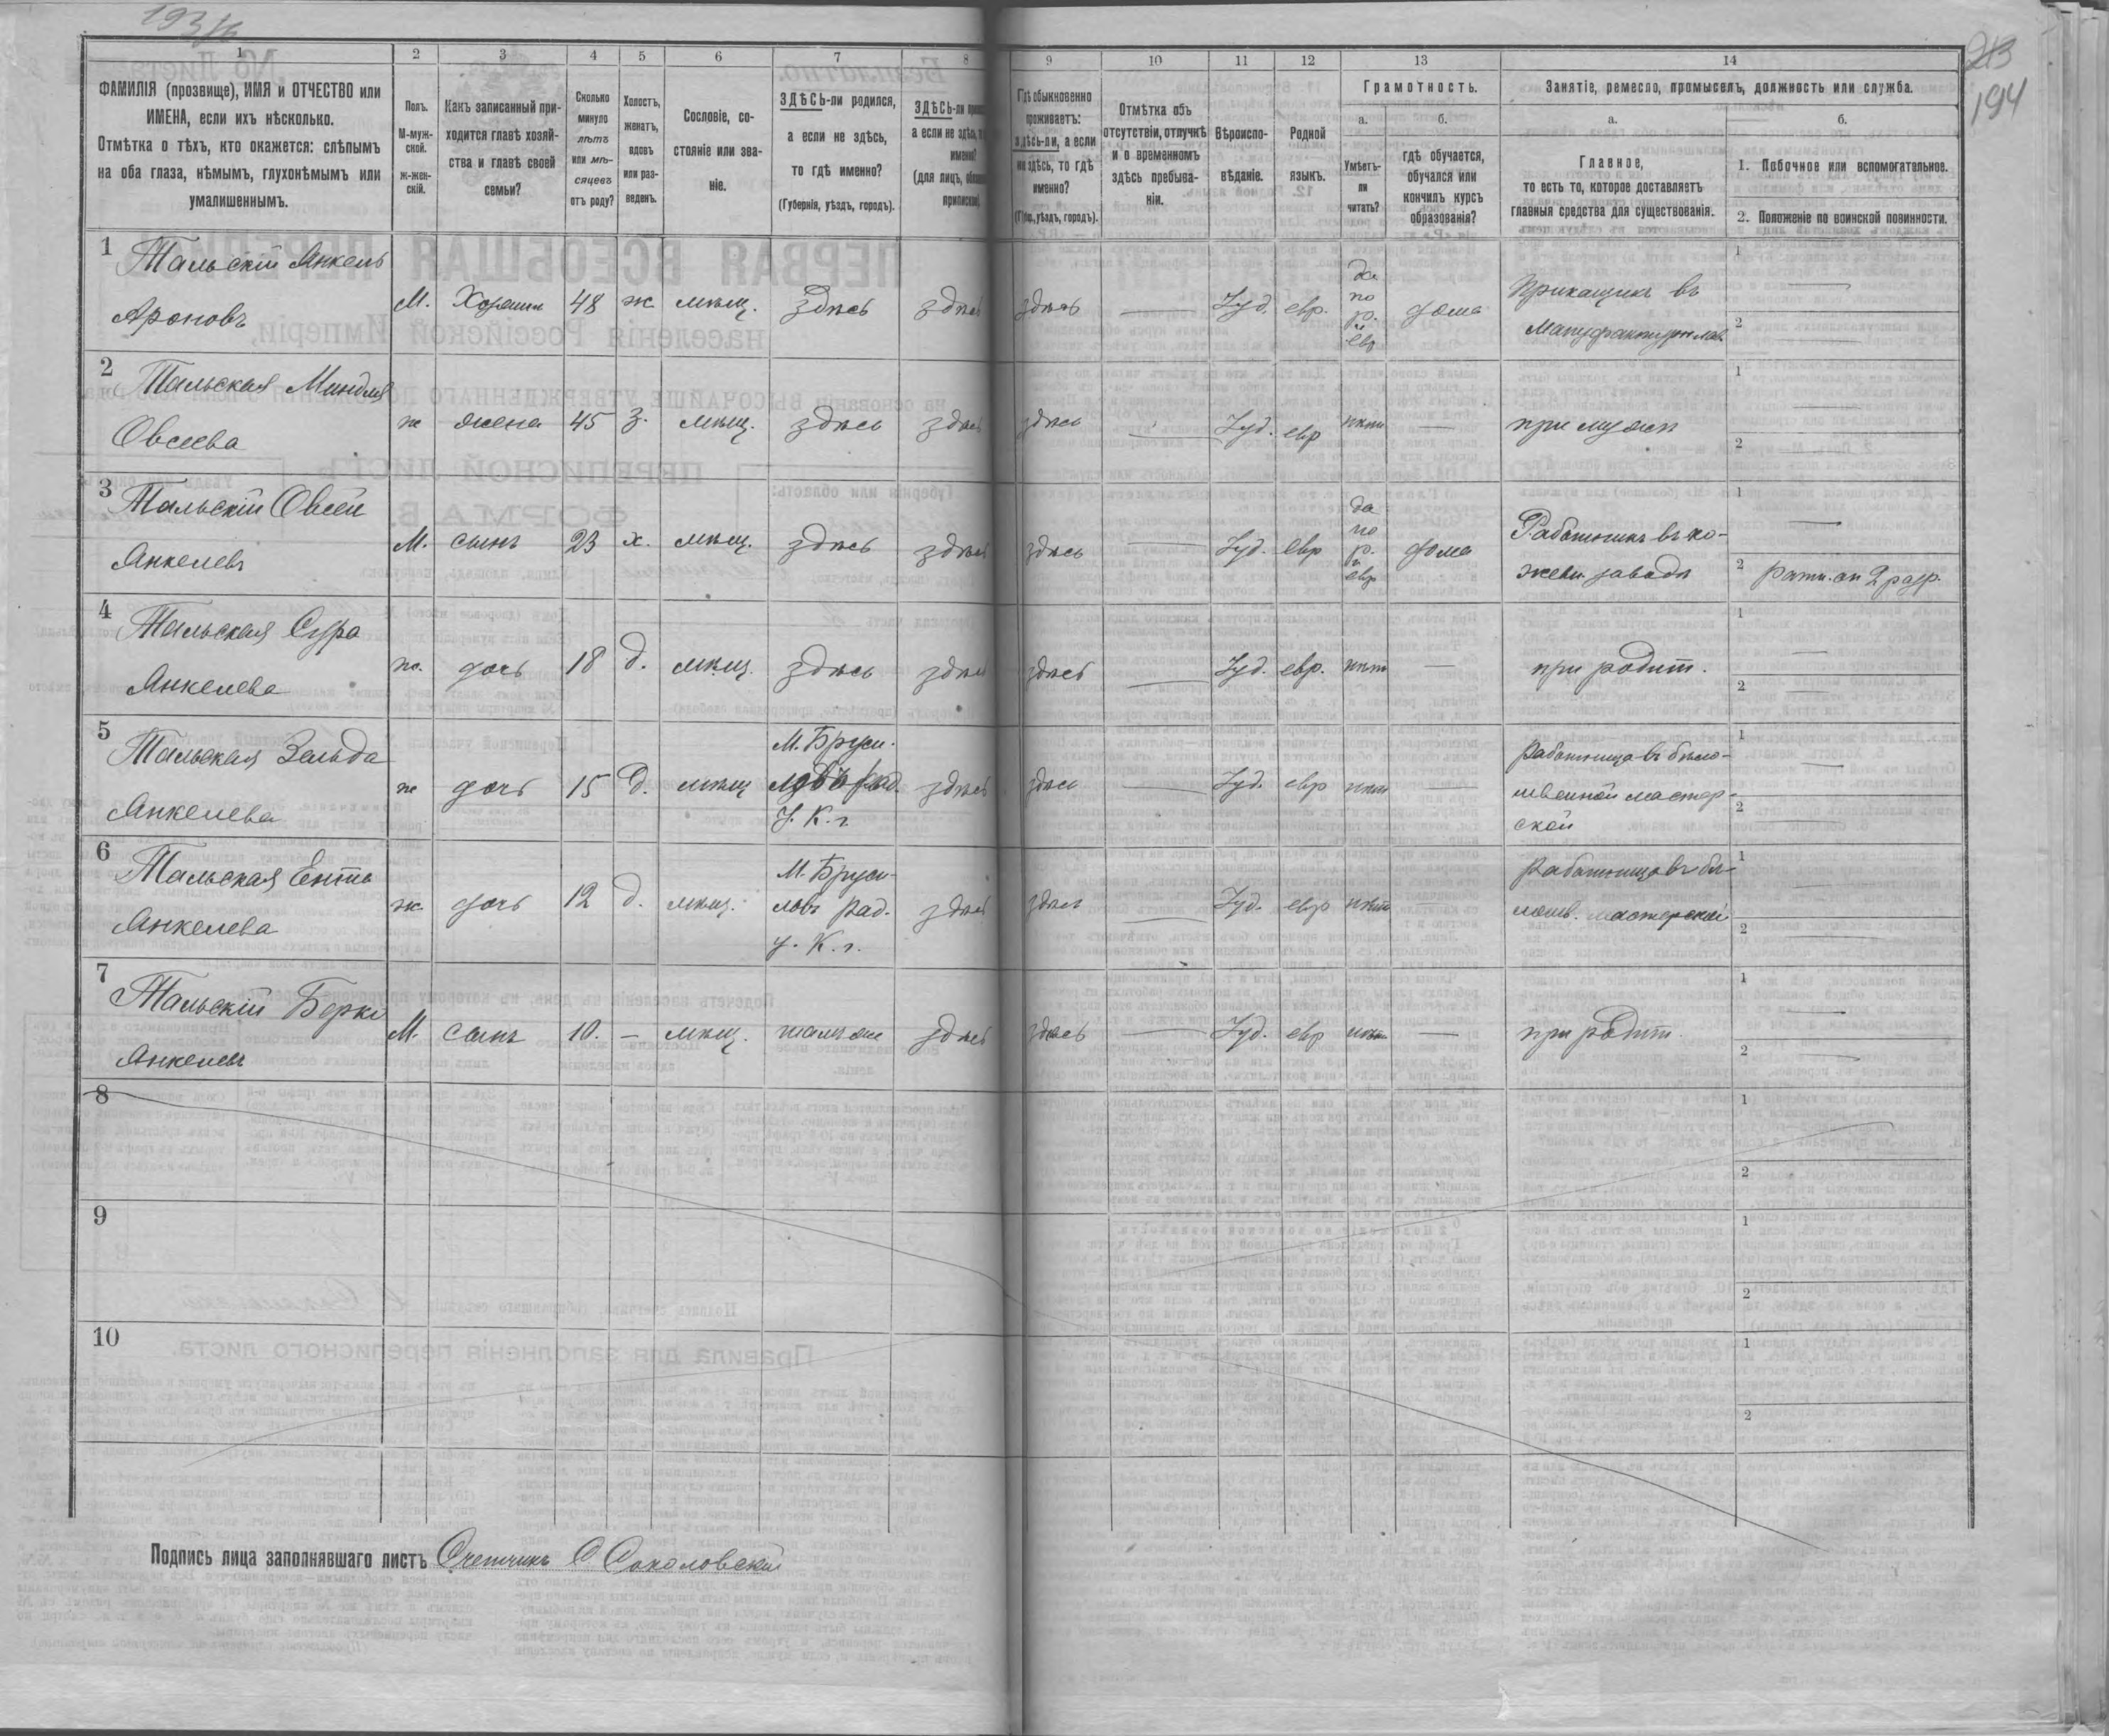 193
213
194
1 2 3 4 5 6 7 8 9 10 11 12 13 14
ФАМИЛІЯ (прозвище), ИМЯ и ОТЧЕСТВО или
ИМЕНА, если ихъ нѣсколько.
Отмѣтка о тѣхъ, кто окажется: слѣпымъ
на оба глаза, нѣмымъ, глухонѣмымъ или
умалишеннымъ.
Полъ.
М-муж-
ской.
ж-жен-
скій.
Какъ записанный при-
ходится главѣ хозяй-
ства и главѣ своей
семьи?
Сколько
минуло
лѣтъ
или мѣ-
сяцевъ
отъ роду?
Холостъ,
женатъ,
вдовъ
или раз-
веденъ.
Сословіе, со-
стояніе или зва-
ніе.
ЗДѢСЬ-ли родился,
а если не здѣсь,
то гдѣ именно?
(Губернія, уѣздъ, городъ).
ЗДѢСЬ-ли
а если не здѣсь,
именно?
(для лицъ,
Гдѣ обыкновенно
проживаетъ:
здѣсь-ли, а если
не здѣсь, то гдѣ
именно?
(Губ., уѣздъ, городъ).
Отмѣтка объ
отсутствіи, отлучкѣ
и о временномъ
здѣсь пребыва-
ніи.
Вѣроиспо-
вѣданіе.
Родной
языкъ.
Грамотность.
а. б.
Умѣетъ-
ли
читать?
гдѣ обучается,
обучался или
кончилъ курсъ
образованія?
Занятіе, ремесло, промыселъ, должность или служба.
а. б.
Главное,
то есть то, которое доставляетъ
главныя средства для существованія.
1. Побочное или вспомогательное.
2. Положеніе по воинской повинности.
1 Тальскій Янкель
Ароновъ
М. Хозяинъ 48 ж. мѣщ. здѣсь здѣсь здѣсь — Іуд. евр.
да
по
р.
и
евр
дома
Прикащикъ въ
Мануфактурн. лав.
1 —
2 —
2 Тальская Миндля
Овсеева
ж жена 45 з. мѣщ. здѣсь здѣсь здѣсь — Іуд. евр нѣтъ —
при мужѣ
1 —
2 —
3 Тальскій Овсей
Янкелевъ
М. сынъ 23 х. мѣщ. здѣсь здѣсь здѣсь — Іуд. евр
да
по
р.
и
евр
дома
Работникъ въ ко-
жевн. заводѣ
1 —
2 ратн. оп 2 разр.
4 Тальская Сура
Янкелева
ж. дочь 18 д. мѣщ. здѣсь здѣсь здѣсь — Іуд. евр. нѣтъ —
при родит.
1 —
2 —
5 Тальская Зельда
Янкелева
ж дочь 15 д. мѣщ
М. Бруси-
ловъ Рад.
у. К. г.
здѣсь здѣсь — Іуд. евр нѣтъ —
работница въ бѣло-
швейной мастер-
ской
1 —
2 —
6 Тальская Ента
Янкелева
ж. дочь 12 д. мѣщ.
М. Бруси-
ловъ Рад.
у. К. г.
здѣсь здѣсь — Іуд. евр нѣтъ
работница въ бѣ-
лошв. мастерской
1 —
2 —
7 Тальскій Берко
Янкелевъ
М. сынъ 10. — мѣщ. тамъ же здѣсь здѣсь — Іуд. евр нѣтъ —
при родит.
1 —
2 —
8
1
2
9
1
2
10
1
2
Подпись лица заполнявшаго листъ Счетчикъ С Соколовскій